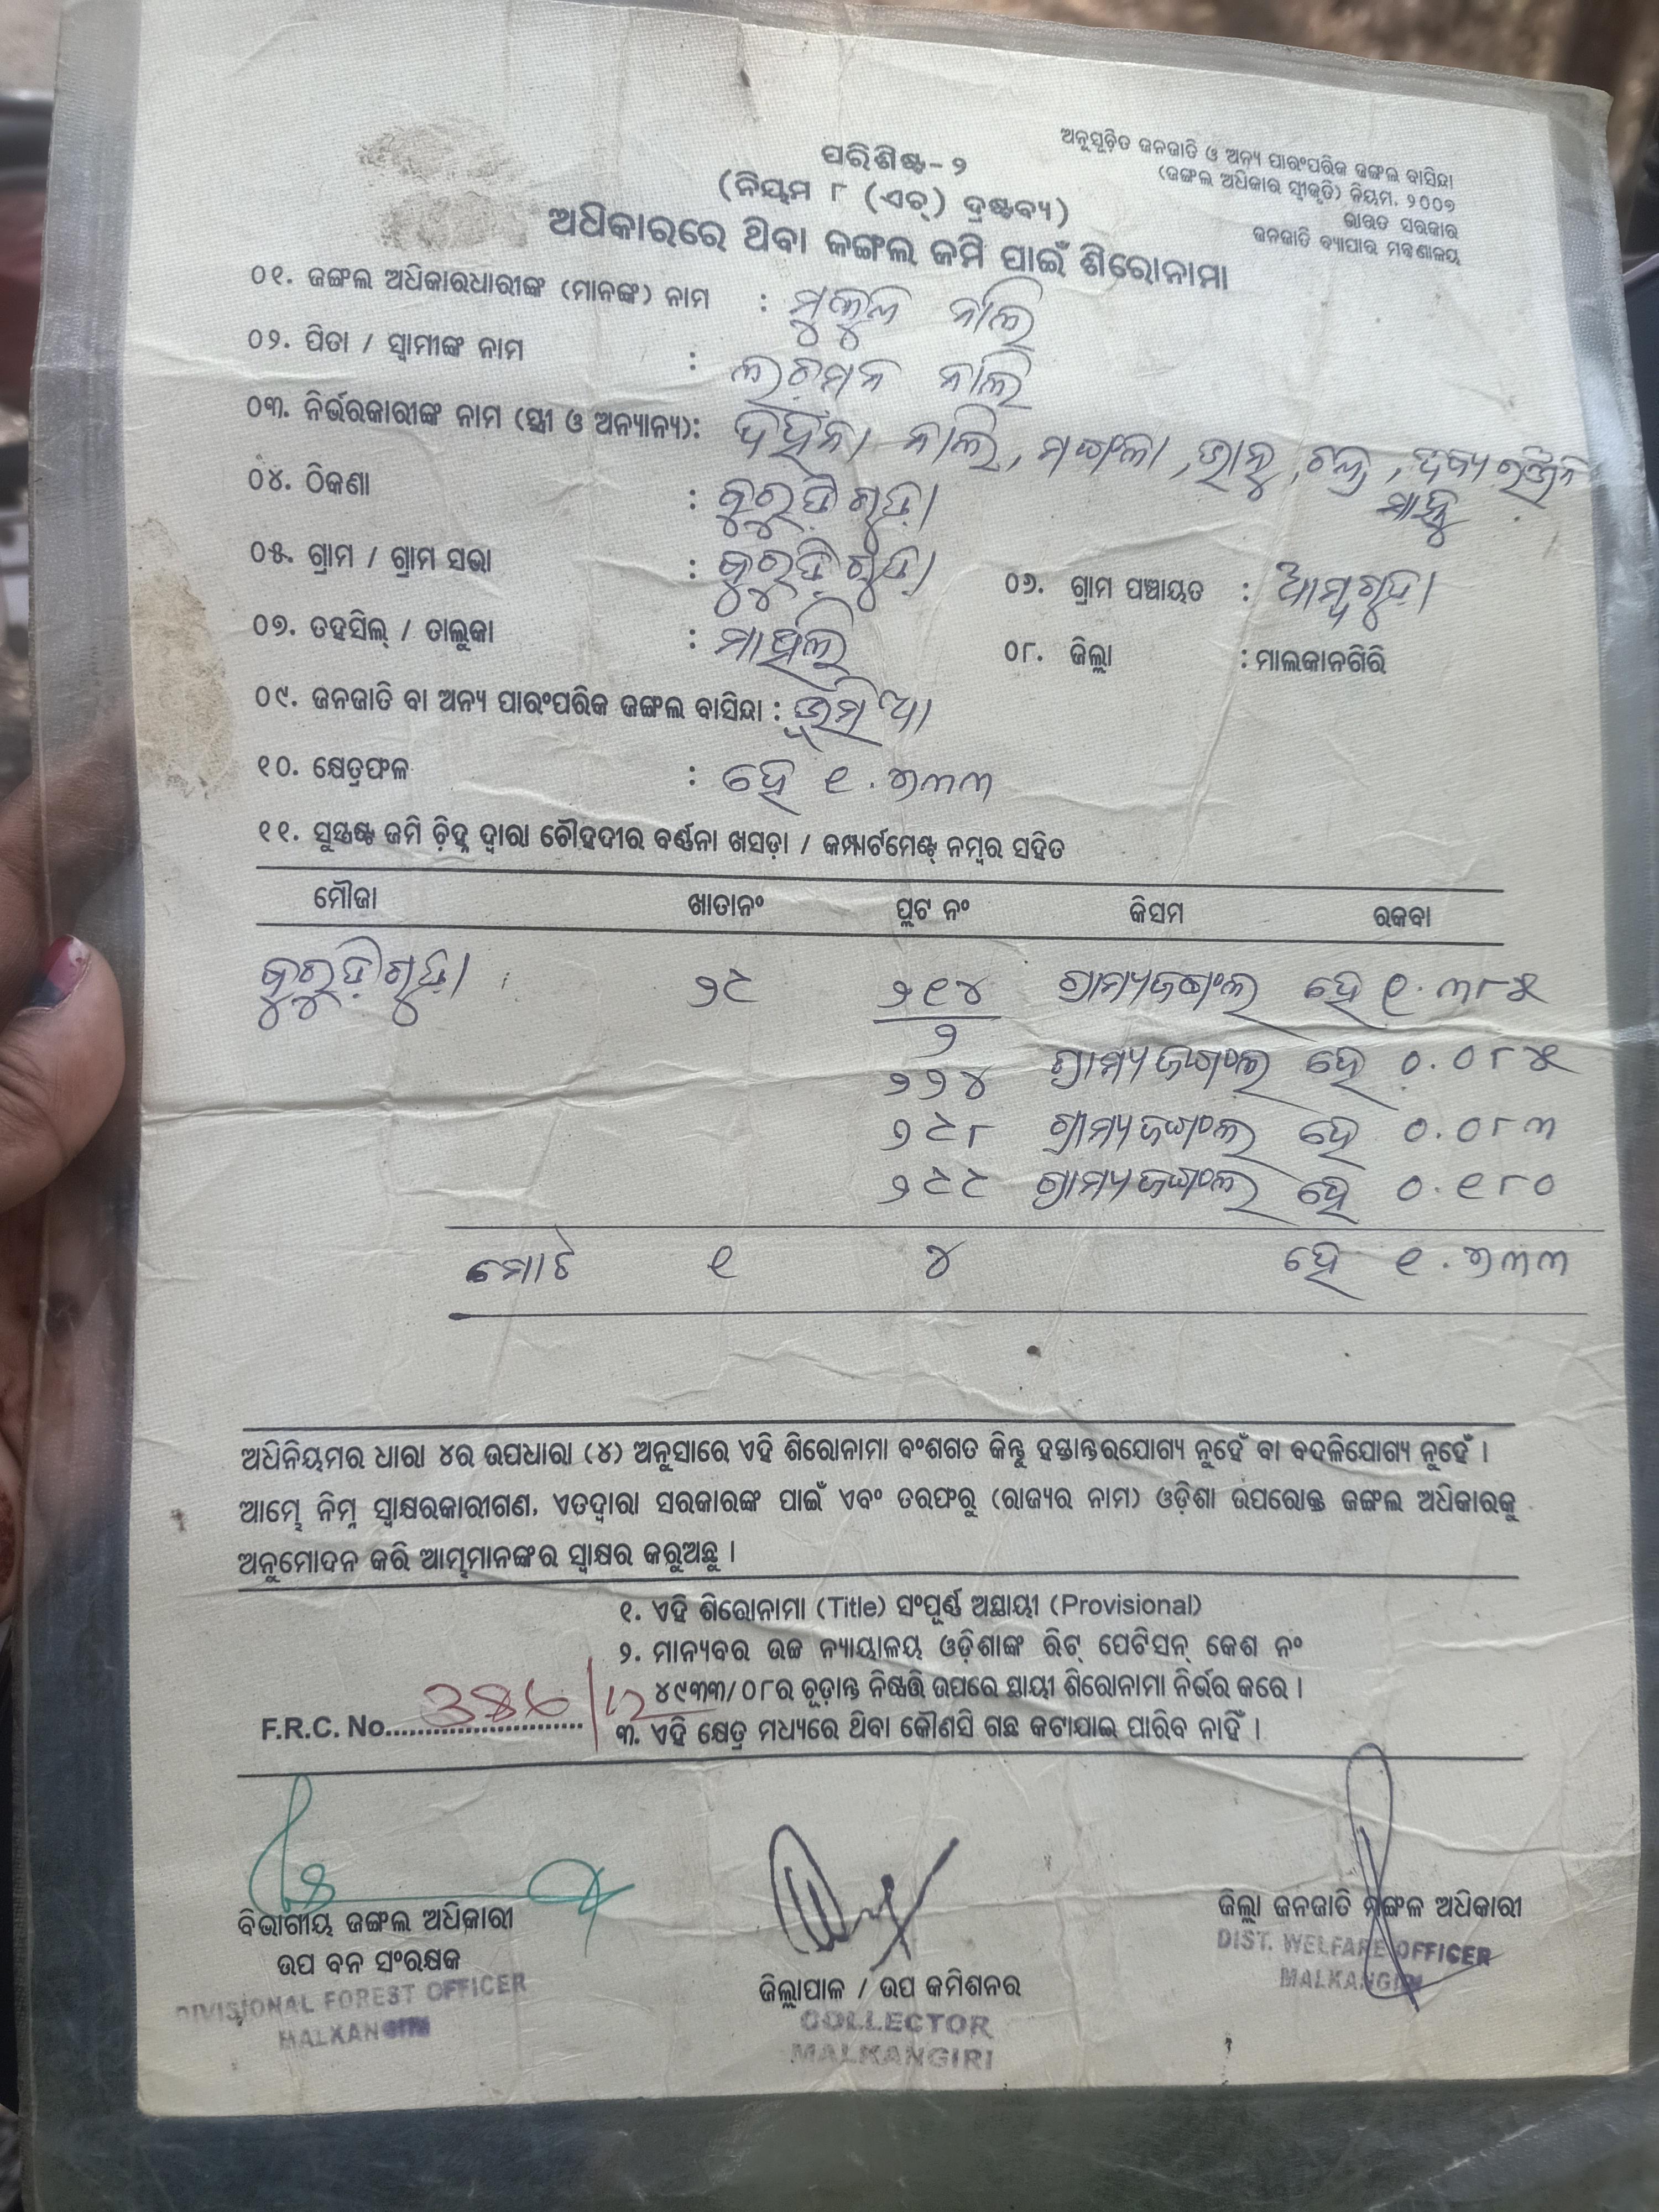 ପରିଶିଷ୍ଟ-୨
(ନିୟମ ୮ (ଏଚ୍) ଦ୍ରଷ୍ଟବ୍ୟ)
ଅନୁସୂଚିତ ଜନଜାତି ଓ ଅନ୍ୟ ପାରଂପରିକ ଜଙ୍ଗଲ ବାସିନ୍ଦା
(ଜଙ୍ଗଲ ଅଧିକାର ସ୍ୱୀକୃତି) ନିୟମ, ୨୦୦୭
ଭାରତ ସରକାର
ଜନଜାତି ବ୍ୟାପାର ମନ୍ତ୍ରଣାଳୟ
ଅଧିକାରରେ ଥିବା ଜଙ୍ଗଲ ଜମି ପାଇଁ ଶିରୋନାମା
୦୧. ଜଙ୍ଗଲ ଅଧିକାରଧାରୀଙ୍କ (ମାନଙ୍କ) ନାମ : ମୁକୁନ୍ଦ ନାଲି
୦୨. ପିତା / ସ୍ୱାମୀଙ୍କ ନାମ : ଲଚମନ ନାଲି
୦୩. ନିର୍ଭରକାରୀଙ୍କ ନାମ (ସ୍ତ୍ରୀ ଓ ଅନ୍ୟାନ୍ୟ): ନାଲି, ମଙ୍ଗଳା,
୦୪. ଠିକଣା : କୁରୁଡ଼ିଗୁଡ଼ା
୦୫. ଗ୍ରାମ / ଗ୍ରାମ ସଭା : କୁରୁଡ଼ିଗୁଡ଼ା ୦୬. ଗ୍ରାମ ପଞ୍ଚାୟତ : ଆମ୍ବଗୁଡ଼ା
୦୭. ତହସିଲ୍ / ତାଲୁକା : ମାଥିଲି ୦୮. ଜିଲ୍ଲା : ମାଲକାନଗିରି
୦୯. ଜନଜାତି ବା ଅନ୍ୟ ପାରଂପରିକ ଜଙ୍ଗଲ ବାସିନ୍ଦା : ଭୂମିଆ
୧୦. କ୍ଷେତ୍ରଫଳ : ହେ ୧.୭୩୩
୧୧. ସୁସ୍ପଷ୍ଟ ଜମି ଚ଼ିହ୍ନ ଦ୍ୱାରା ଚୌହଦୀର ବର୍ଣ୍ଣନା ଖସଡ଼ା / କମ୍ପାର୍ଟମେଣ୍ଟ୍ ନମ୍ବର ସହିତ
ମୌଜା ଖାତାନଂ ପ୍ଲଟ ନଂ କିସମ ରକବା
କୁରୁଡ଼ିଗୁଡ଼ା ୨୯ ୨୧୪/୨ ଗ୍ରାମ୍ୟଜଙ୍ଗଲ ହେ ୧.୩୮୫
୨୨୪ ଗ୍ରାମ୍ୟଜଙ୍ଗଲ ହେ ୦.୦୮୫
୨୯୮ ଗ୍ରାମ୍ୟଜଙ୍ଗଲ ହେ ୦.୦୮୩
୨୯୯ ଗ୍ରାମ୍ୟଜଙ୍ଗଲ ହେ ୦.୧୮୦
ମୋଟ ୧ ୪ ହେ ୧.୭୩୩
ଅଧିନିୟମର ଧାରା ୪ର ଉପଧାରା (୪) ଅନୁସାରେ ଏହି ଶିରୋନାମା ବଂଶଗତ କିନ୍ତୁ ହସ୍ତାନ୍ତରଯୋଗ୍ୟ ନୁହେଁ ବା ବଦଳିଯୋଗ୍ୟ ନୁହେଁ ।
ଆମ୍ଭେ ନିମ୍ନ ସ୍ୱାକ୍ଷରକାରୀଗଣ, ଏତଦ୍ୱାରା ସରକାରଙ୍କ ପାଇଁ ଏବଂ ତରଫରୁ (ରାଜ୍ୟର ନାମ) ଓଡ଼ିଶା ଉପରୋକ୍ତ ଜଙ୍ଗଲ ଅଧିକାରକୁ
ଅନୁମୋଦନ କରି ଆମ୍ଭମାନଙ୍କର ସ୍ୱାକ୍ଷର କରୁଅଛୁ ।
୧. ଏହି ଶିରୋନାମା (Title) ସଂପୂର୍ଣ୍ଣ ଅସ୍ଥାୟୀ (Provisional)
୨. ମାନ୍ୟବର ଉଚ୍ଚ ନ୍ୟାୟାଳୟ ଓଡ଼ିଶାଙ୍କ ରିଟ୍ ପେଟିସନ୍ କେଶ ନଂ
୪୯୩୩/୦୮ର ଚୂଡ଼ାନ୍ତ ନିଷ୍ପତ୍ତି ଉପରେ ସ୍ଥାୟୀ ଶିରୋନାମା ନିର୍ଭର କରେ ।
F.R.C. No.
୩. ଏହି କ୍ଷେତ୍ର ମଧ୍ୟରେ ଥିବା କୌଣସି ଗଛ କଟାଯାଇ ପାରିବ ନାହିଁ ।
ବିଭାଗୀୟ ଜଙ୍ଗଲ ଅଧିକାରୀ
ଉପ ବନ ସଂରକ୍ଷକ
DIVISIONAL FOREST OFFICER
MALKANGIRI
ଜିଲ୍ଲାପାଳ / ଉପ କମିଶନର
COLLECTOR
MALKANGIRI
ଜିଲ୍ଲା ଜନଜାତି ମଙ୍ଗଳ ଅଧିକାରୀ
DIST. WELFARE OFFICER
MALKANGIRI